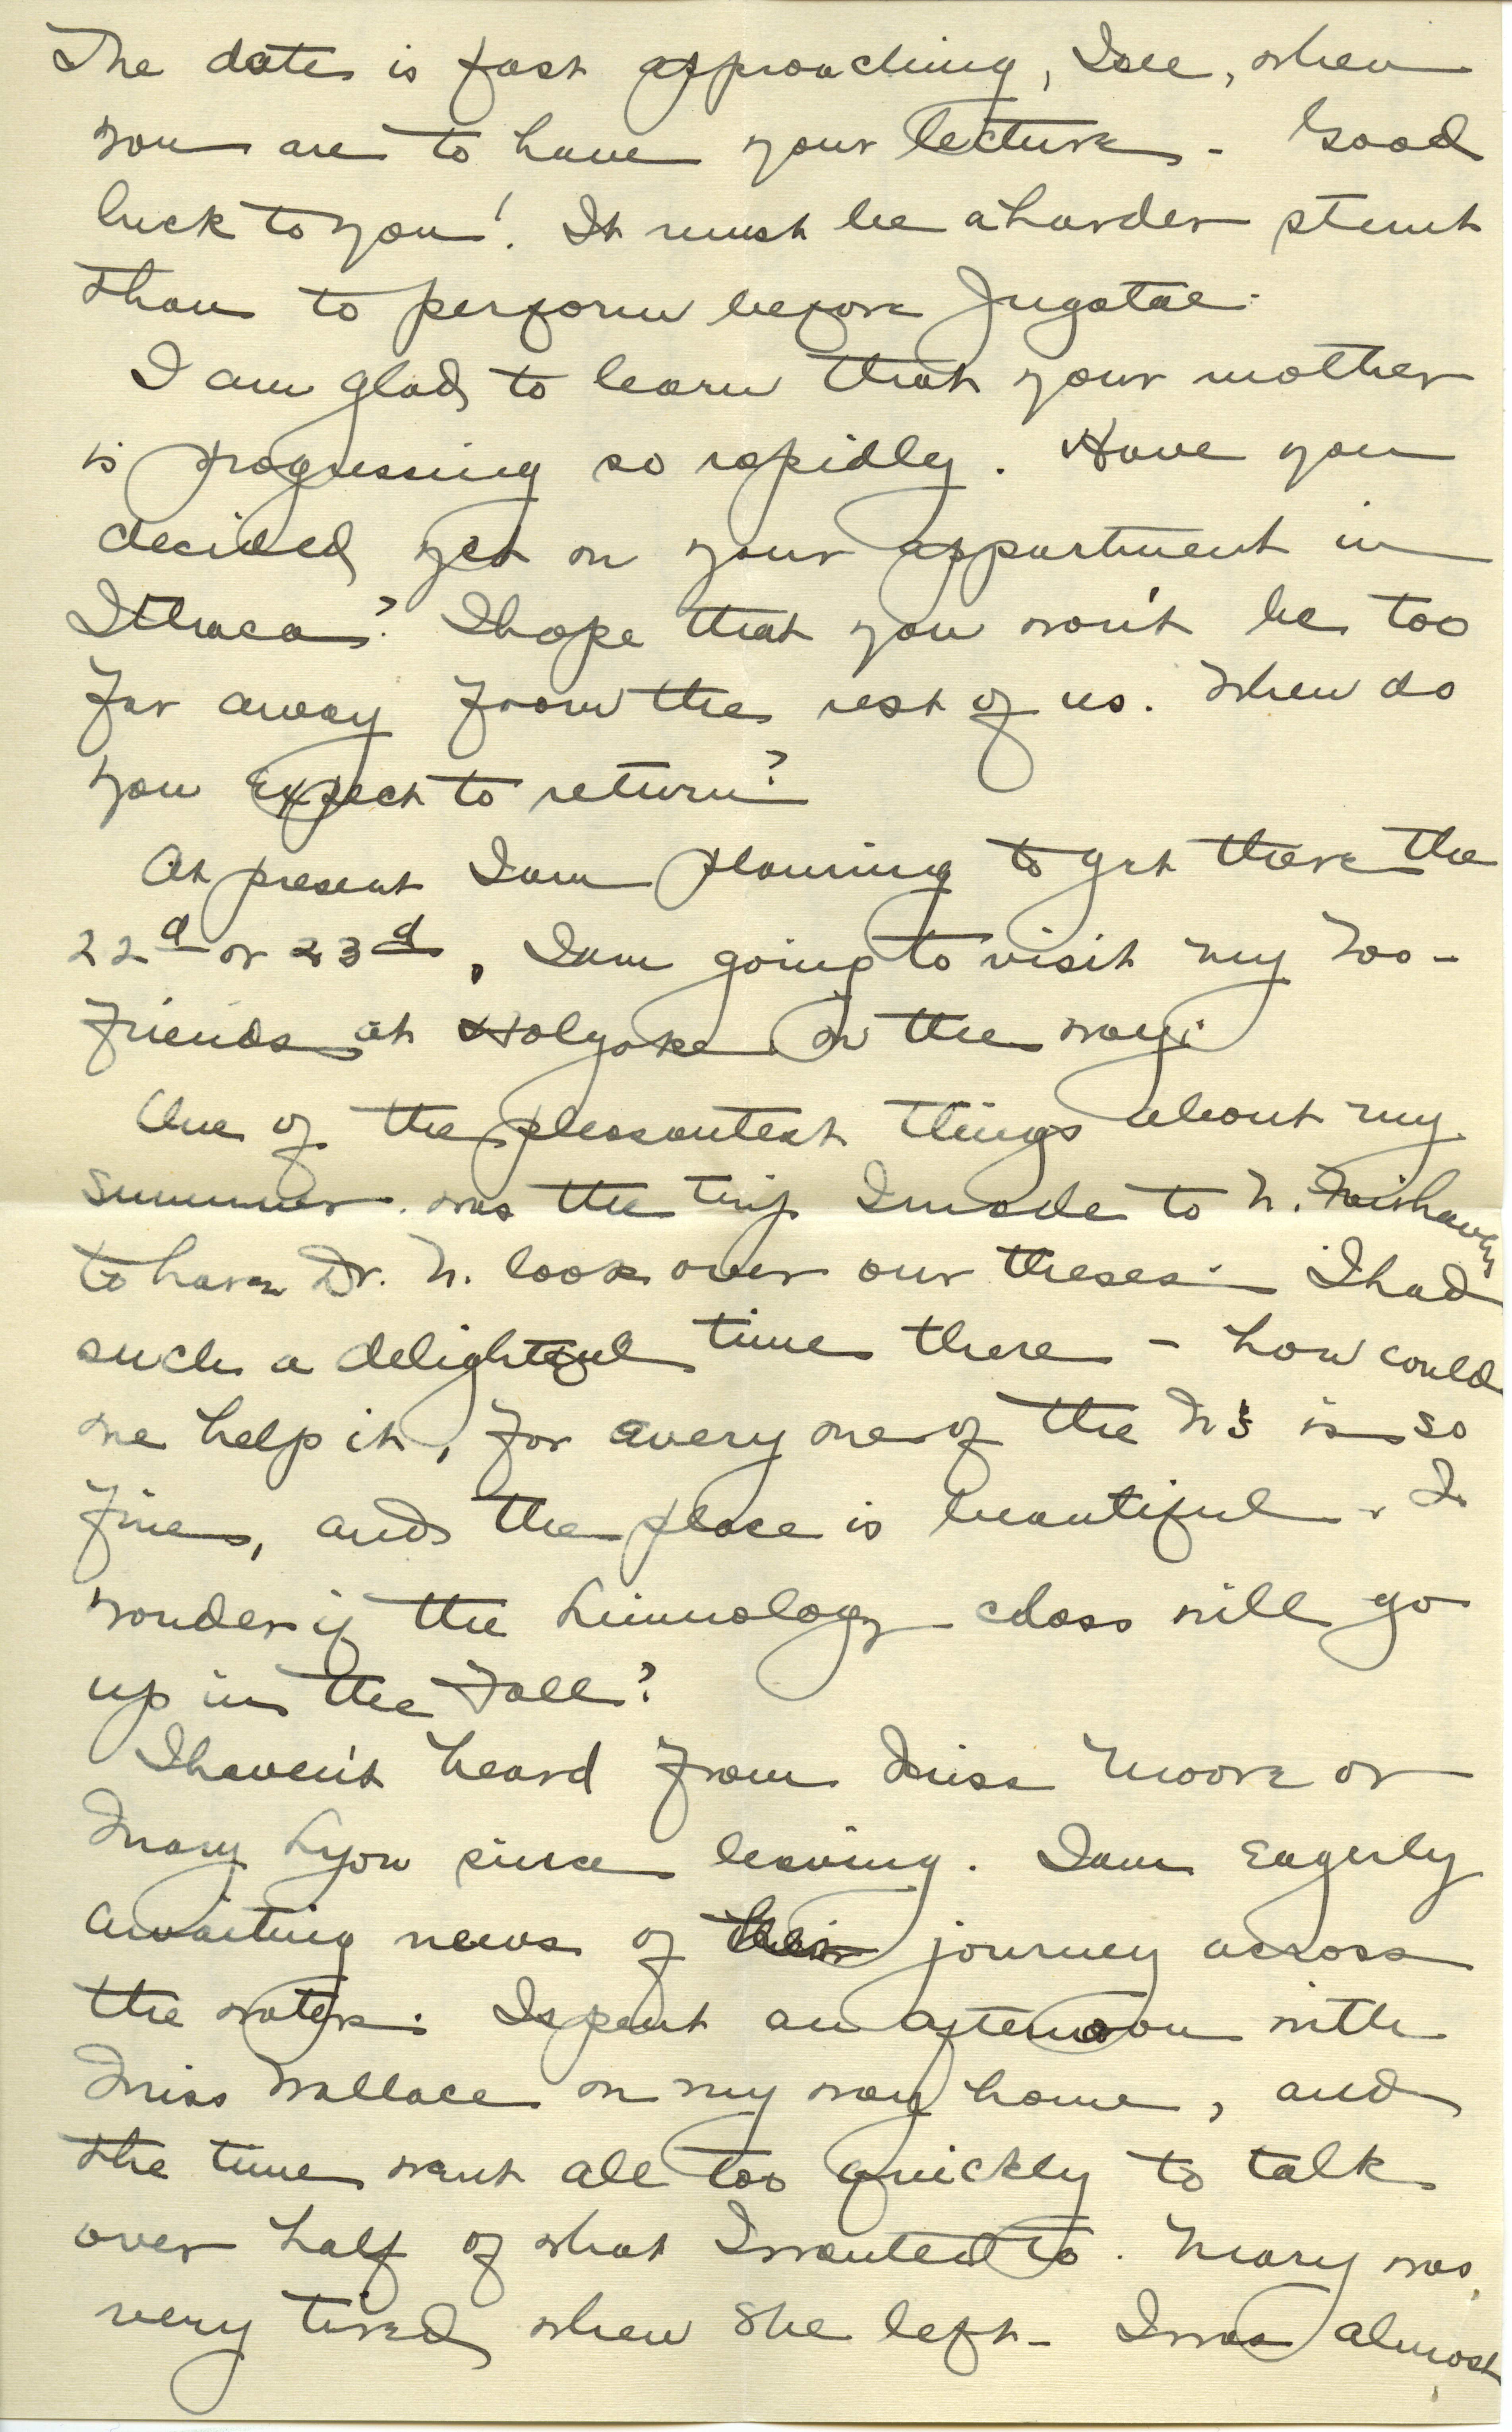 The date is fast approaching, I see, when
you are to have your lecture - Good
luck to you! It must be a harder stunt
than to perform before Jugatae.
I am glad to learn that your mother
is progressing so rapidly. Have you
decided yet on your appartment in
Ithaca? I hope that you won't be too
far away from the rest of us. When do
you expect to return?
At present I am planning to get there the
22d or 23d, I am going to visit my Zoo-
friends at Holyoke on the way.
One of the pleasantest things about my
summer was the trip I made to N. Fairhaven
to have Dr. N. look over our theses. I had
such a delightful time there - how could
one help it, for every one of the N's is so
fine, and the place is beautiful. I
wonder if the Limnology class will go
up in the Fall?
I haven't heard from Miss Moore or
Mary Lyon since leaving. I am eagerly
awaiting news of their journey across
the water. I spent an afternoon with
Miss Wallace on my way home, and
the time went all too quickly to talk
over half of what I wanted to. Mary was
very tired when she left - I was almost